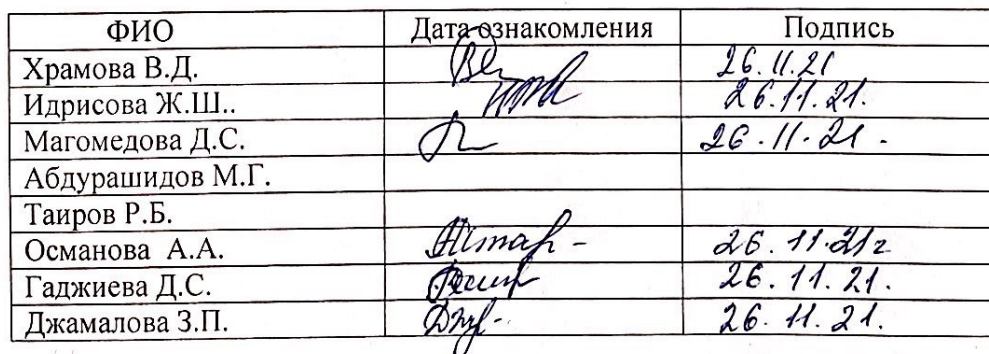 ФИО Дата ознакомления Подпись
Храмова В.Д. 26.11.21
Идрисова Ж.Ш.. 26.11.21.
Магомедова Д.С. 26.11.21.
Абдурашидов М.Г.
Таиров Р.Б.
Османова А.А. 26.11.21г
Гаджиева Д.С. 26.11.21.
Джамалова З.П. 26.11.21.